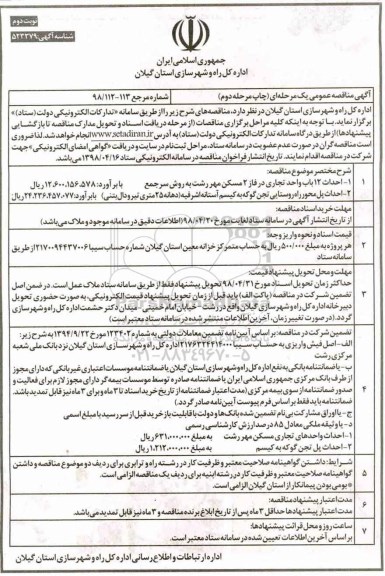 نوبت دوم
شناسه آگهی: ۵۲۳۳۷۹
جمهوری اسلامی ایران
اداره کل راه و شهرسازی استان گیلان
آگهی مناقصه عمومی یک مرحله‌ای (چاپ مرحله دوم)
شماره مرجع ۱۱۳-۹۸/۱۱۲
اداره کل راه و شهرسازی استان گیلان در نظر دارد، مناقصه‌های شرح زیر را از طریق سامانه «تدارکات الکترونیکی دولت (ستاد)»
برگزار نماید. با توجه به اینکه کلیه مراحل برگزاری مناقصات (از مرحله دریافت اسناد و تحویل مدارک مناقصه تا بازگشایی
پیشنهادها) از طریق درگاه سامانه تدارکات الکترونیکی دولت (ستاد) به آدرس www.setadiran.ir انجام خواهد شد. لذا ضروری
است مناقصه گران در صورت عدم عضویت در سامانه ستاد، مراحل ثبت‌نام در سایت و دریافت «گواهی امضای الکترونیکی» جهت
شرکت در مناقصه اقدام نمایند. تاریخ انتشار فراخوان مناقصه در سامانه الکترونیکی ستاد ۱۳۹۸/۰۴/۱۶ می‌باشد.
شرح مختصر موضوع مناقصه:
۱
۱- احداث ۱۲ باب واحد تجاری در فاز ۲ مسکن مهر رشت به روش سرجمع با برآورد: ۱۲,۶۰۰,۱۵۶,۵۷۸ ریال
۲- احداث پل محور راه روستایی تجن گوکه به کیسم آستانه اشرفیه (دهانه ۲۵ متری تیر و دال بتنی) با برآورد: ۲۴,۲۳۶,۴۵۷,۰۷۷ ریال
مهلت خرید اسناد مناقصه:
از تاریخ انتشار آگهی در سامانه ستاد لغایت مورخ ۹۸/۰۴/۲۰ (اطلاعات دقیق در سامانه موجود و ملاک می‌باشد)
۲
قیمت اسناد و نحوه واریز وجه:
هر پروژه به مبلغ ۵۰۰/۰۰۰ ریال به حساب متمرکز خزانه معین استان گیلان شماره حساب سیبا ۲۱۷۰۰۹۴۴۳۷۰۰۶ از طریق
سامانه ستاد
۳
مهلت و محل تحویل پیشنهاد قیمت:
حداکثر زمان تحویل اسناد مورخ ۹۸/۰۴/۳۱ تحویل پیشنهاد فقط از طریق سامانه ستاد ملاک عمل است. در ضمن اصل
تضمین شرکت در مناقصه (پاکت الف) باید قبل از زمان تحویل پیشنهاد قیمت الکترونیکی، به صورت حضوری تحویل
دبیرخانه اداره کل راه و شهرسازی گیلان واقع در رشت - خیابان امام خمینی - میدان دکتر حشمت اداره کل راه و شهرسازی
گردد. (در صورت تغییر زمان، آخرین اطلاعات منتشر شده در سامانه ستاد معتبر است)
۴
تضمین شرکت در مناقصه: بر اساس آیین نامه تضمین معاملات دولتی به شماره ۱۲۳۴۰۲ مورخ ۱۳۹۴/۹/۲۲ به شرح زیر:
الف- اصل فیش واریزی به حساب سیبا ۲۱۷۶۳۲۴۴۱۴۰۰۰ اداره کل راه و شهرسازی استان گیلان نزد بانک ملی شعبه
مرکزی رشت
ب- یا ضمانتنامه بانکی به نفع اداره کل راه و شهرسازی استان گیلان یا ضمانتنامه موسسات اعتباری غیر بانکی که دارای مجوز
از طرف بانک مرکزی جمهوری اسلامی ایران یا ضمانتنامه صادره توسط موسسات بیمه گر دارای مجوز لازم برای فعالیت و
صدور ضمانتنامه از سوی بیمه مرکزی (مدت اعتبار ضمانتنامه از تاریخ خرید اسناد تا ۳ ماه و برای ۳ ماه نیز قابل تمدید باشد.
ضمانتنامه باید فقط بر اساس فرم پیوست آیین نامه صادر گردد)
ج- یا اوراق مشارکت بی نام تضمین شده بانک‌ها و دولت با قابلیت بازخرید قبل از سررسید با مبلغ اسمی
د- یا وثیقه ملکی معادل ۸۵ درصد ارزش کارشناسی رسمی
۱- احداث واحدهای تجاری مسکن مهر رشت به مبلغ ۶۳۱,۰۰۰,۰۰۰ ریال
۲- احداث پل تجن گوکه به کیسم به مبلغ ۱,۲۱۲,۰۰۰,۰۰۰ ریال
۵
شرایط: داشتن گواهینامه صلاحیت معتبر و ظرفیت کار در رشته راه و ترابری برای ردیف دو موضوع مناقصه و داشتن
گواهینامه صلاحیت معتبر و ظرفیت کار در رشته ابنیه برای ردیف یک مناقصه الزامی است.
* بومی بودن پیمانکار از استان گیلان الزامی است.
۶
مدت اعتبار پیشنهاد مناقصه:
مدت اعتبار پیشنهادها حداقل ۳ ماه پس از تاریخ ابلاغ برنده مناقصه و ۳ ماه نیز قابل تمدید می‌باشد.
۷
ساعت و روز و محل قرائت پیشنهادها:
بر اساس آخرین اطلاعات تعیین شده در سامانه ستاد معتبر است.
اداره ارتباطات و اطلاع رسانی اداره کل راه و شهرسازی استان گیلان
۰۲۱-۸۸۳۴۹۶۷۰-۵